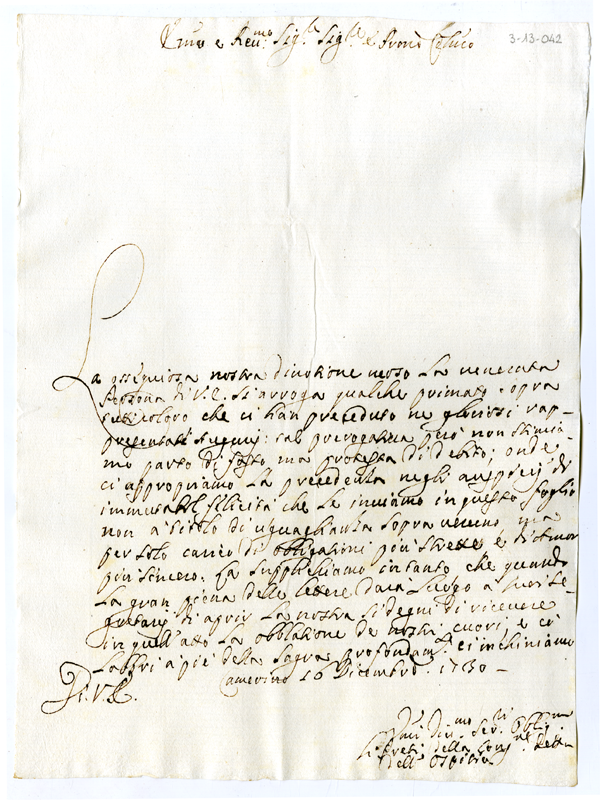 E.mo e Rev.mo Sig.r Sig.r e Pron Col.mo
3-13-042
La ossequiosa nostra divozione verso la venerata
Persona di V.E. si arroga qualche primato sopra
tutti coloro che ci han preceduto ne gloriosi rap-
presentati auguri: tal prerogativa però non stimia-
mo parto di fasto ma protesta di debito; onde
ci appropriamo la precedenza negli auspicj di
immutabil felicità che le inviamo in questo foglio
non a titolo di uguaglianza sopra veruno ma
per solo carico di obbligazioni più strette e di amor
più sincero. La supplichiamo intanto che quando
la gran piena delle lettere darà luogo a suoi Se-
gretarj di aprir la nostra si degni di ricevere
in quell'atto la obblazione de nostri cuori, e co'
labbri a piè della Sagra profondam.te ci inchiniamo
Di V.E. Camerino 10 Dicembre 1730
Dev.mi Ser.ri Obblig.mi
Preti della Cong.ne
dell'